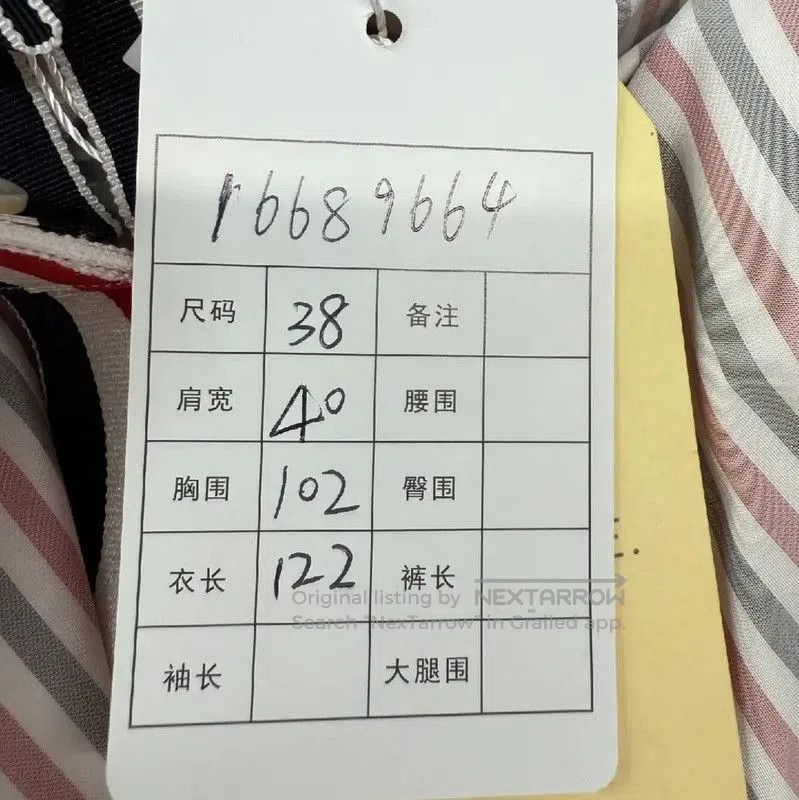 16689664
尺码 38 备注
肩宽 40 腰围
胸围 102 臀围
衣长 122 裤长
袖长 大腿围
E.
Original listing by NEXTARROW
Search "NexTarrow" in Grailed app.